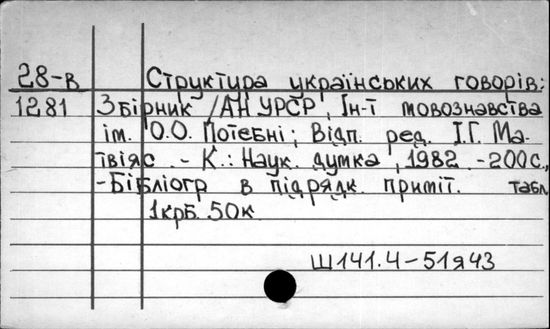 28-в Структура українських говорів:
1281 Збірник /АН УРСР, Ін-т мовознавства
ім. О.О. Потебні; Відп. ред. І.Г. Ма-
твіяс. - К.: Наук. думка, 1982. -200с.,
-Бібліогр в підрядк. приміт. табл
1крб. 50к
Ш141.4-51я43